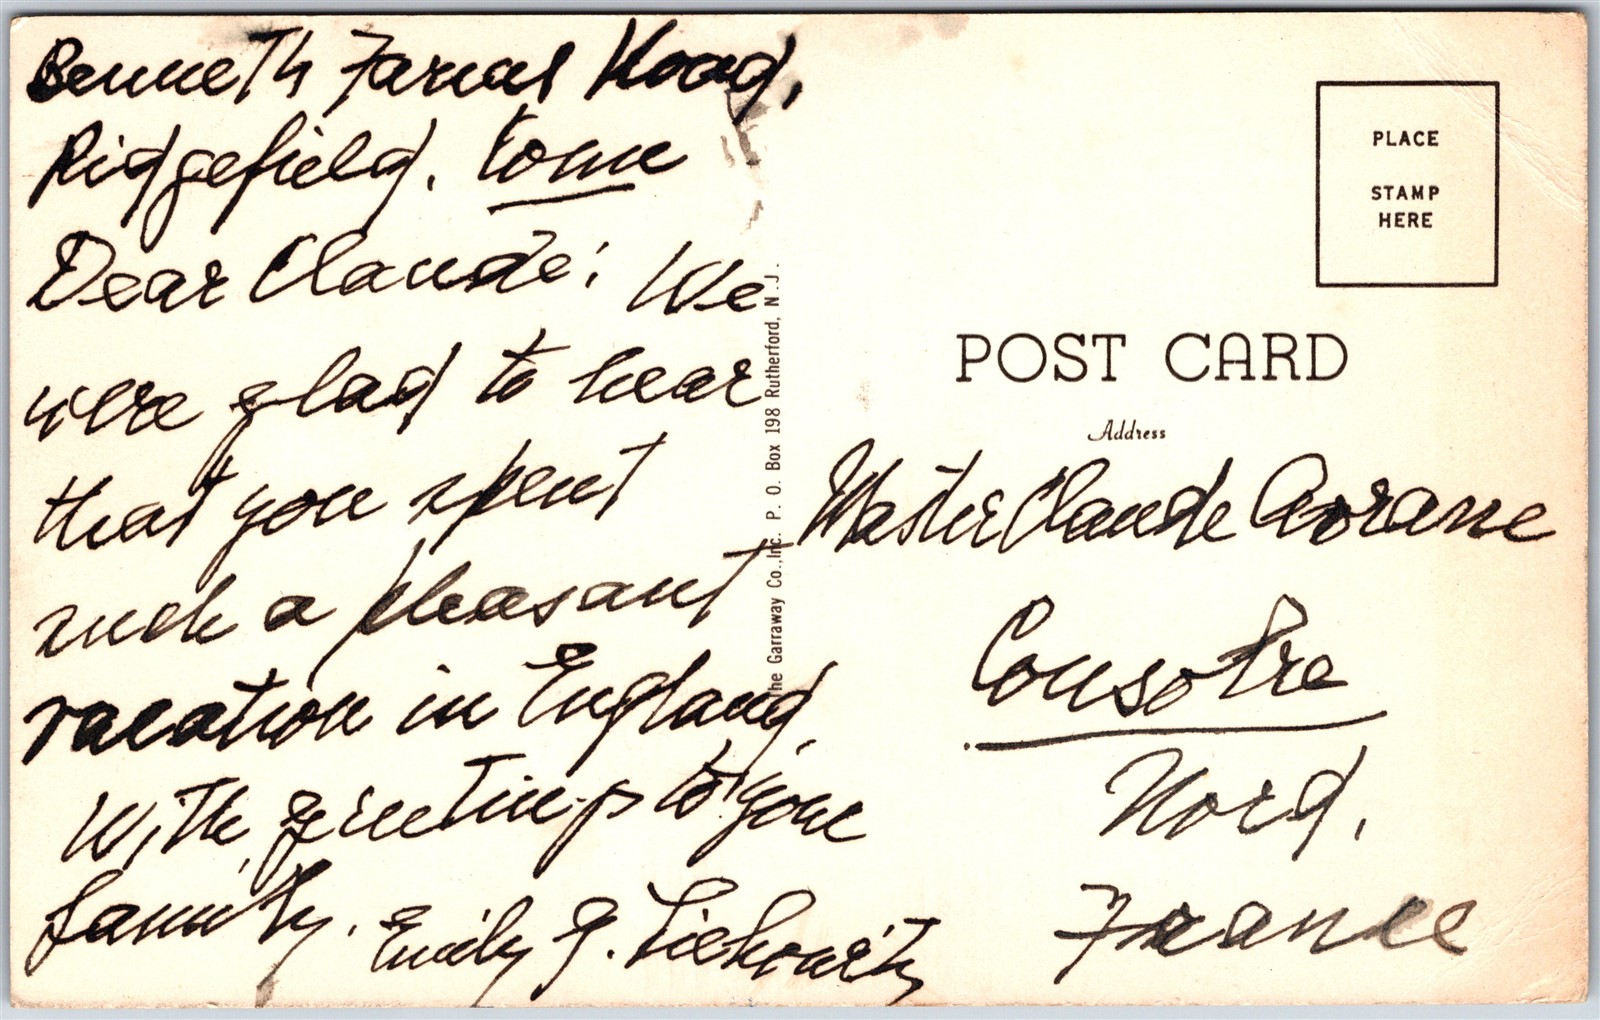 Benneth Farms Road,
Ridgefield. Conn
Dear Claude: We
were glad to hear
that you spent
such a pleasant
vacation in England,
With greetings to your
family. Emily G.
The Garraway Co., Inc. P. O. Box 198 Rutherford, N.J.
PLACE
STAMP
HERE
POST CARD
Address
Master Claude
Cousolre
Nord,
France